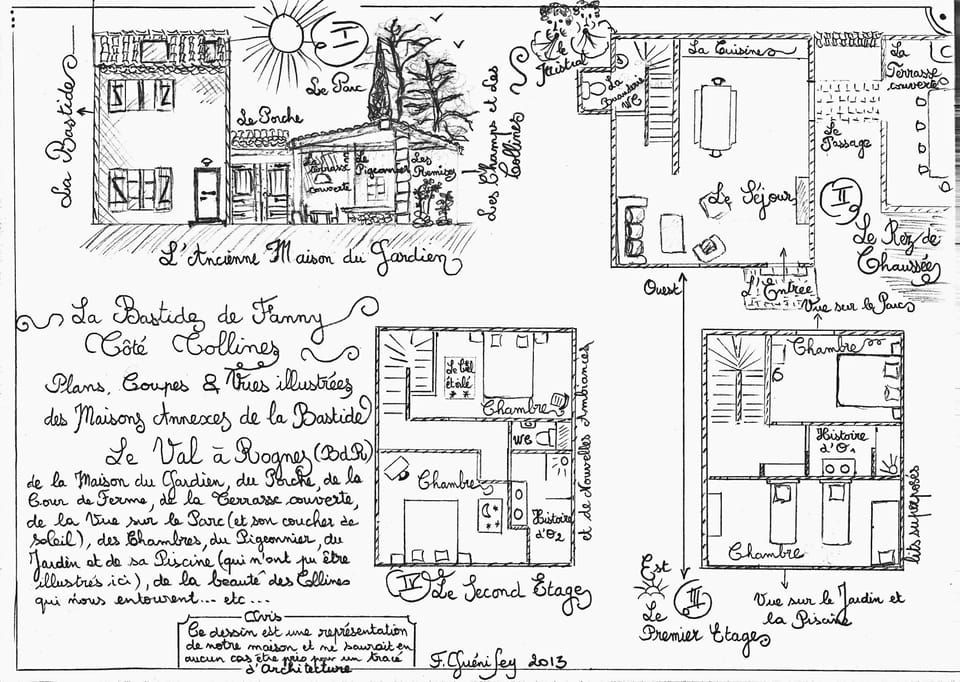 La Bastide
I
Le Parc
Le Porche
La Terrasse
couverte
Le
Pigeonnier
Les
Remises
Les Champs et Les
Collines
L'Ancienne Maison du Gardien
le
Mistral
La Cuisine
La
Buanderie
WC
Le Séjour
L'Entrée
La
Terrasse
couverte
Le
Passage
II
Le Rez de
Chaussée
Ouest
Est
La Bastide de Fanny
Côté Collines
Plans, Coupes & Vues illustrées
des Maisons Annexes de la Bastide
Le Val à Rognes (BdR)
de la Maison du Gardien, du Porche, de la
Cour de Ferme, de la Terrasse couverte,
de la Vue sur le Parc (et son coucher de
soleil), des Chambres, du Pigeonnier, du
Jardin et de sa Piscine (qui n'ont pu être
illustrés ici), de la beauté des Collines
qui nous entourent... etc...
Avis
Ce dessin est une représentation
de notre maison et ne saurait en
aucun cas être pris pour un tracé
d'Architecture
F. Guénifey 2013
Le Ciel
étoilé
Chambre
WC
Chambre
Histoire
d'O2
et de Nouvelles Ambiances
IV Le Second Etage
Vue sur le Parc
Chambre
Histoire
d'O1
Chambre
lits superposés
III
Le
Premier Etage
Vue sur le Jardin et
la Piscine